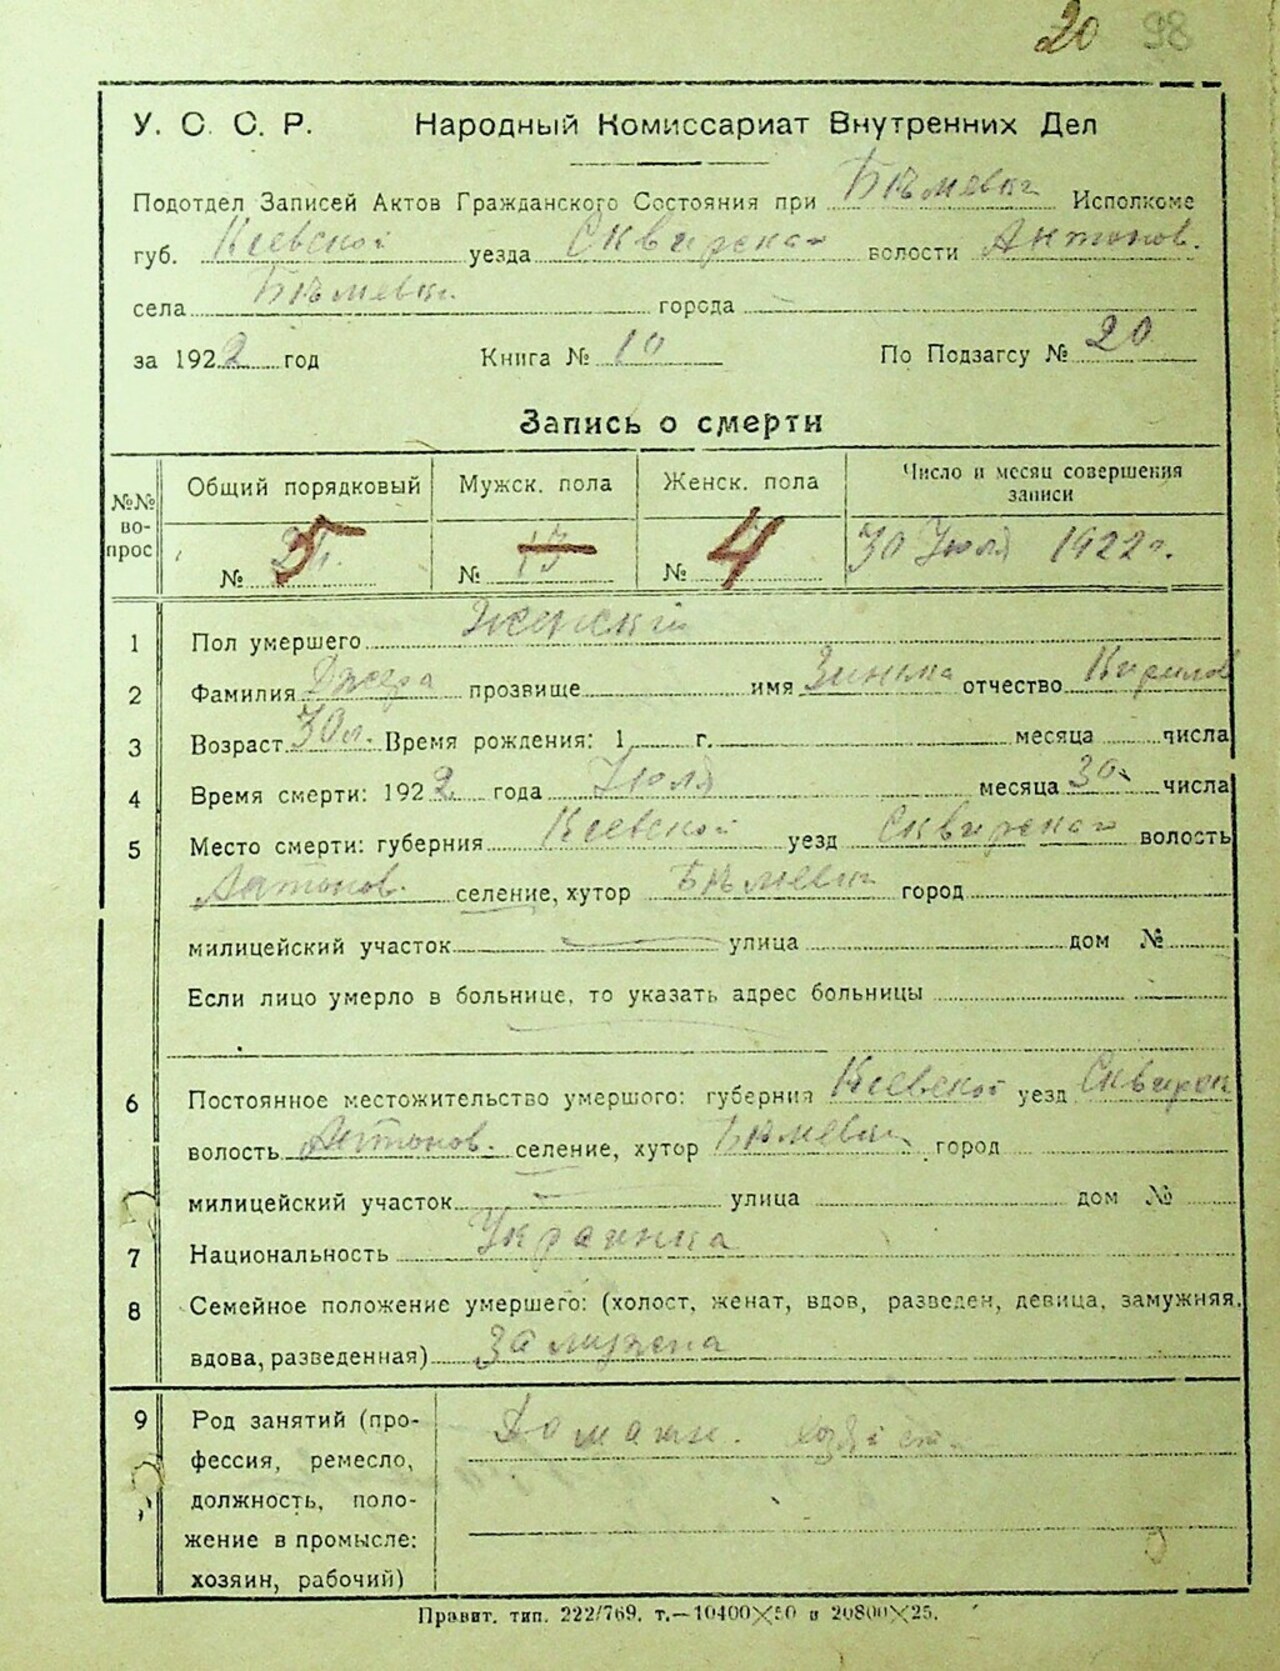 20 98
У. С. С. Р. Народный Комиссариат Внутренних Дел
Подотдел Записей Актов Гражданского Состояния при Исполкоме
губ. Киевской уезда Сквирской волости Антонов.
села города
за 1922 год Книга № 10 По Подзагсу № 20
Запись о смерти
№№ вопрос Общий порядковый Мужск. пола Женск. пола Число и месяц совершения записи
№ 5 № 13 № 4 30 Июля 1922 г.
1 Пол умершего Женский
2 Фамилия прозвище имя Зинька отчество Кирилов
3 Возраст 30 л. Время рождения: 1 г. месяца числа
4 Время смерти: 1922 года Июля месяца 30 числа
5 Место смерти: губерния Киевской уезд Сквирской волость
Антонов. селение, хутор город
милицейский участок улица дом №
Если лицо умерло в больнице, то указать адрес больницы
6 Постоянное местожительство умершого: губерния Киевской уезд Сквирск
волость Антонов. селение, хутор город
милицейский участок улица дом №
7 Национальность Украинка
8 Семейное положение умершего: (холост, женат, вдов, разведен, девица, замужняя,
вдова, разведенная) Замужена
9 Род занятий (про-
фессия, ремесло,
должность, поло-
жение в промысле:
хозяин, рабочий)
Домашн.
Правит. тип. 222/769. т.—10400×50 и 20800×25.